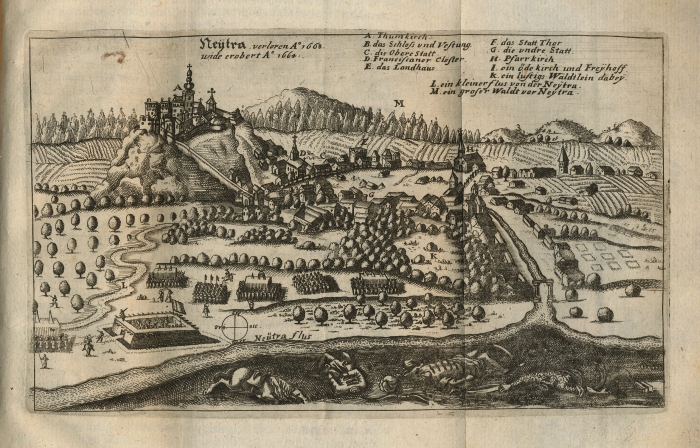 Neÿtra verloren Aº 1663
unde erobert Aº 1664.
A. Thumkirch.
B. das Schloß und Vestung.
C. die Obere Statt
D. Franciscaner Closter.
E. das Landhaus
F. das Statt Thor
G. die undre Statt
H. Pfarrkirch
I. ein öde kirch und Freÿhoff
K. ein lustigs Wäldtlein dabey.
L. ein kleiner flus von der Neÿtra.
M. ein groser Waldt vor Neÿtra.
M
K
Neütra flus